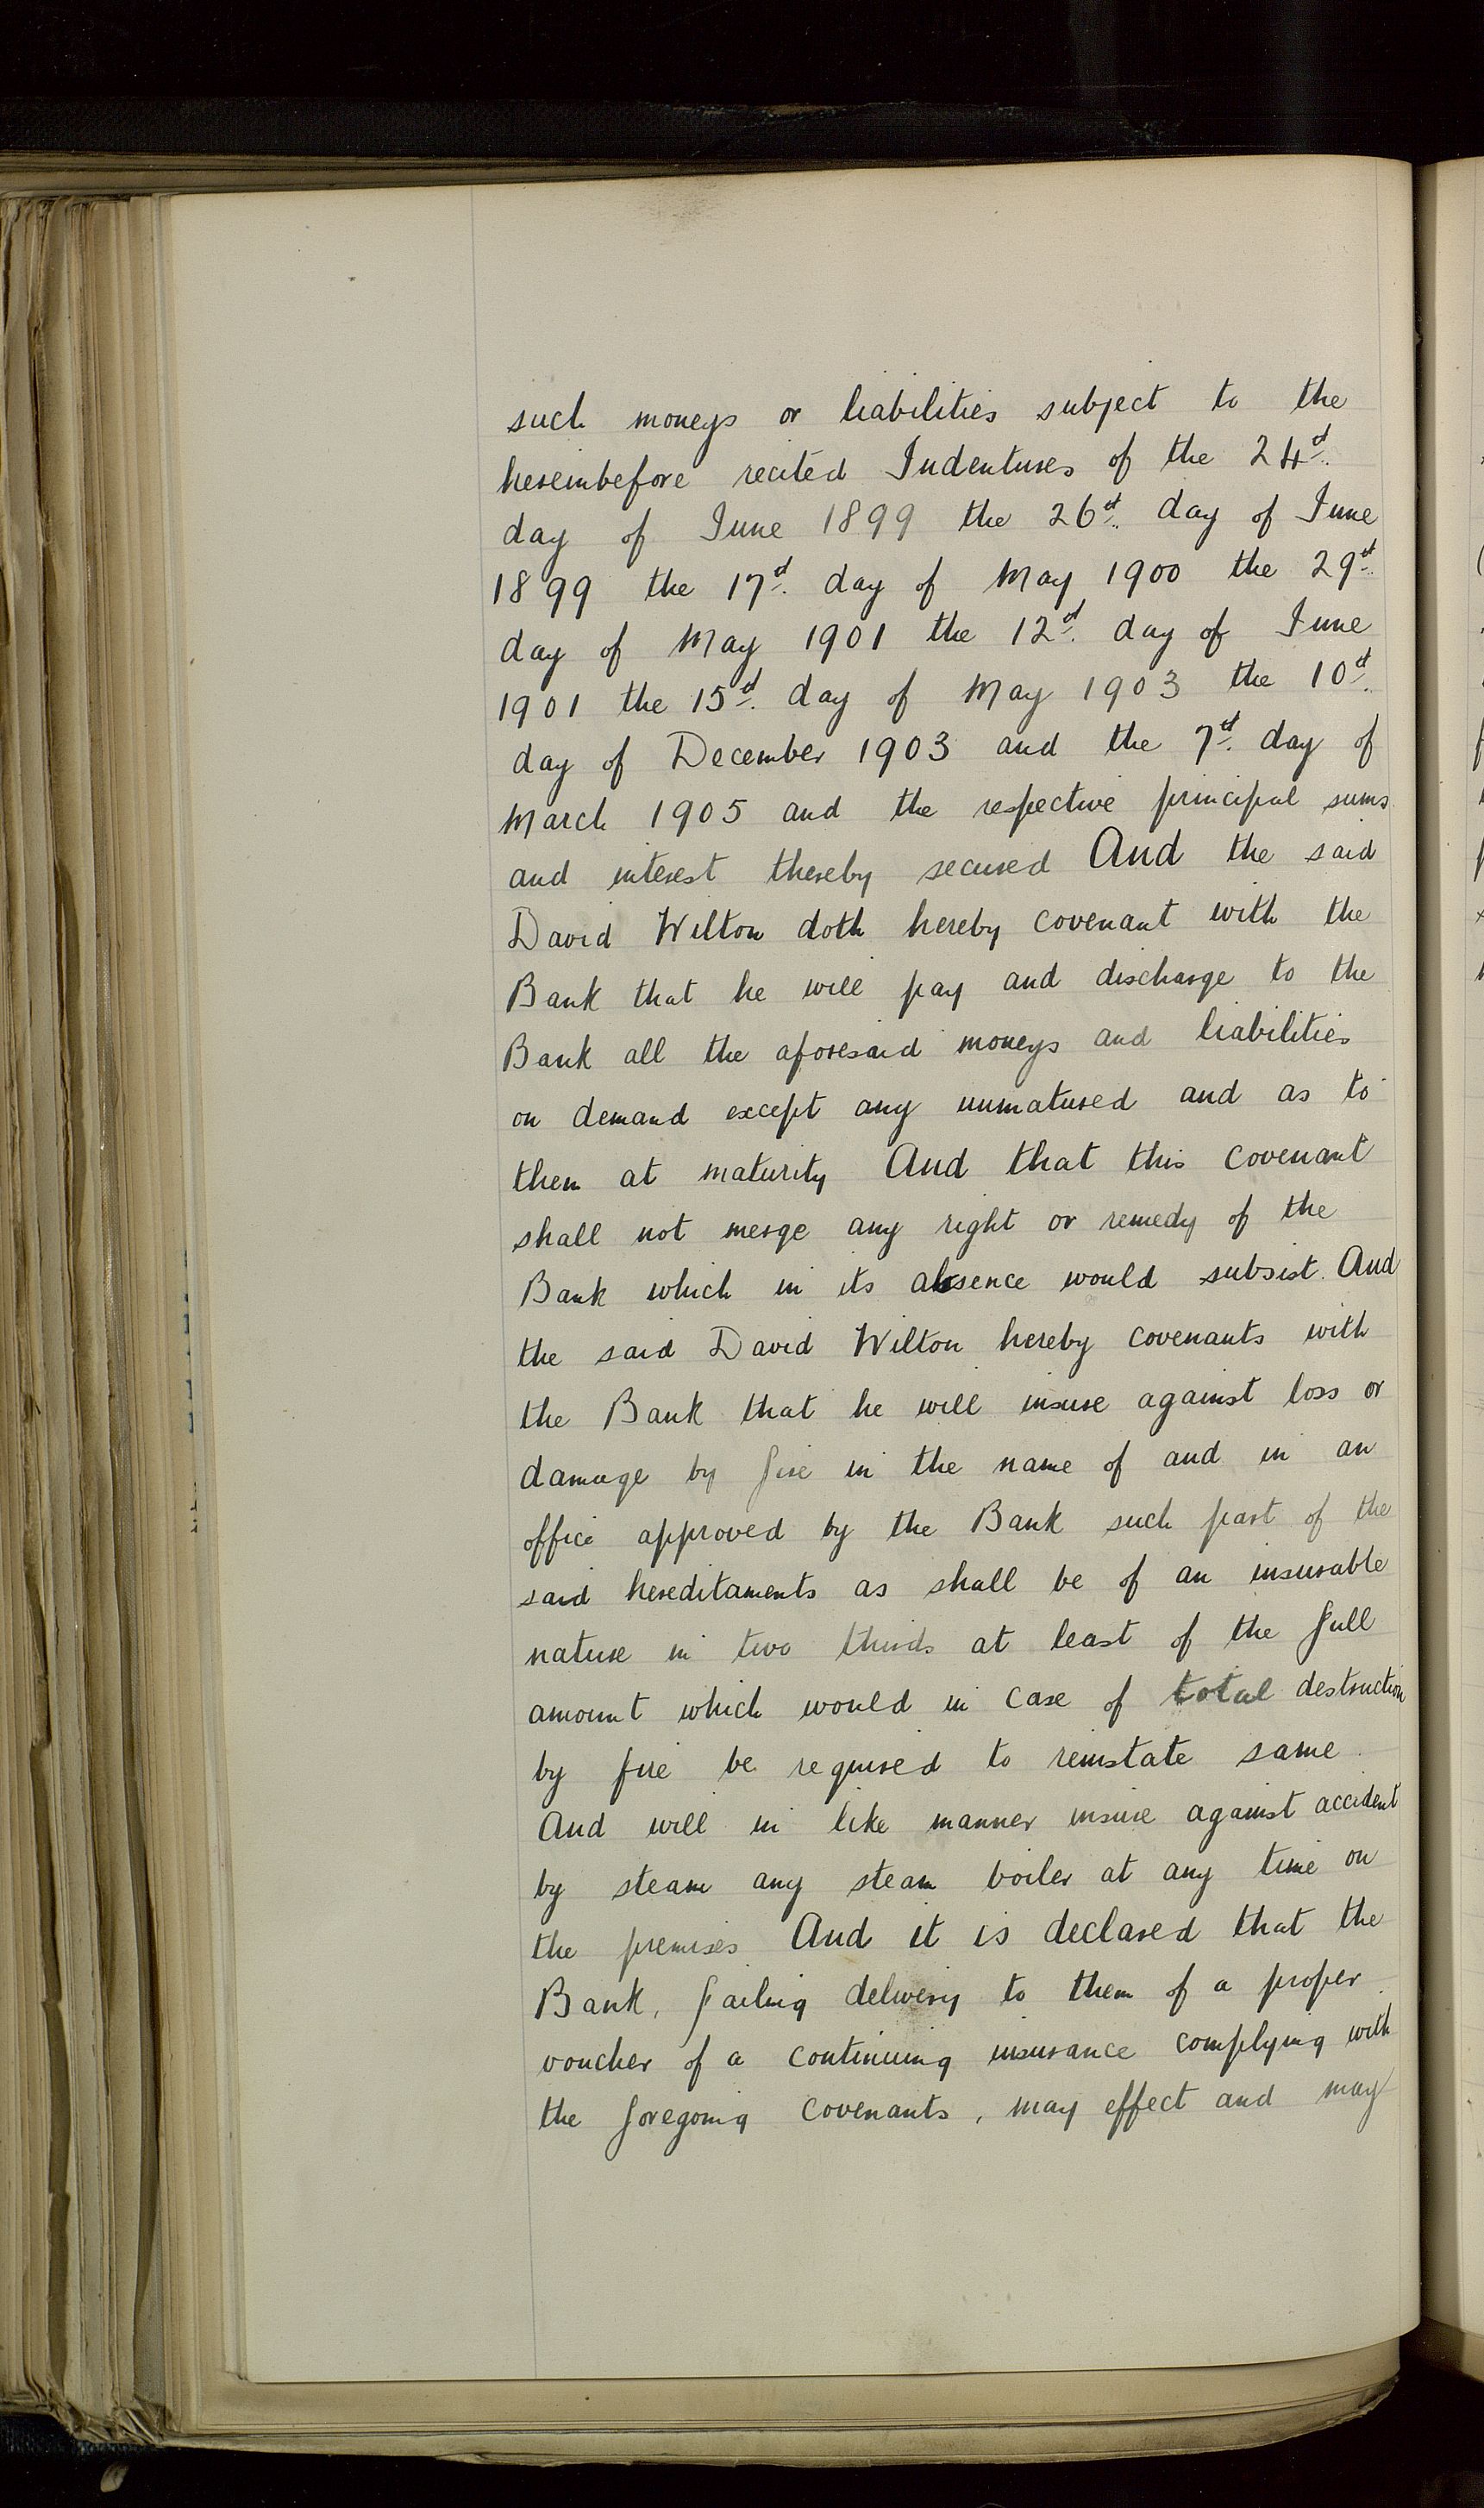 such moneys or liabilities subject to the
hereinbefore recited Indentures of the 24th.
day of June 1899 the 26th. day of June
1899 the 17th. day of May 1900 the 29th.
day of May 1901 the 12th. day of June
1901 the 15th. day of May 1903 the 10th.
day of December 1903 and the 7th. day of
March 1905 and the respective principal sums
and interest thereby secured And the said
David Wilton doth hereby covenant with the
Bank that he will pay and discharge to the
Bank all the aforesaid moneys and liabilities
on demand except any unmatured and as to
them at maturity And that this covenant
shall not merge any right or remedy of the
Bank which in its absence would subsist. And
the said David Wilton hereby covenants with
the Bank that he will insure against loss or
damage by fire in the name of and in an
office approved by the Bank such part of the
said hereditaments as shall be of an insurable
nature in two thirds at least of the full
amount which would in case of total destruction
by fire be required to reinstate same.
And will in like manner insure against accident
by steam any steam boiler at any time on
the premises And it is declared that the
Bank, failing delivery to them of a proper
voucher of a continuing insurance complying with
the foregoing covenants, may effect and may